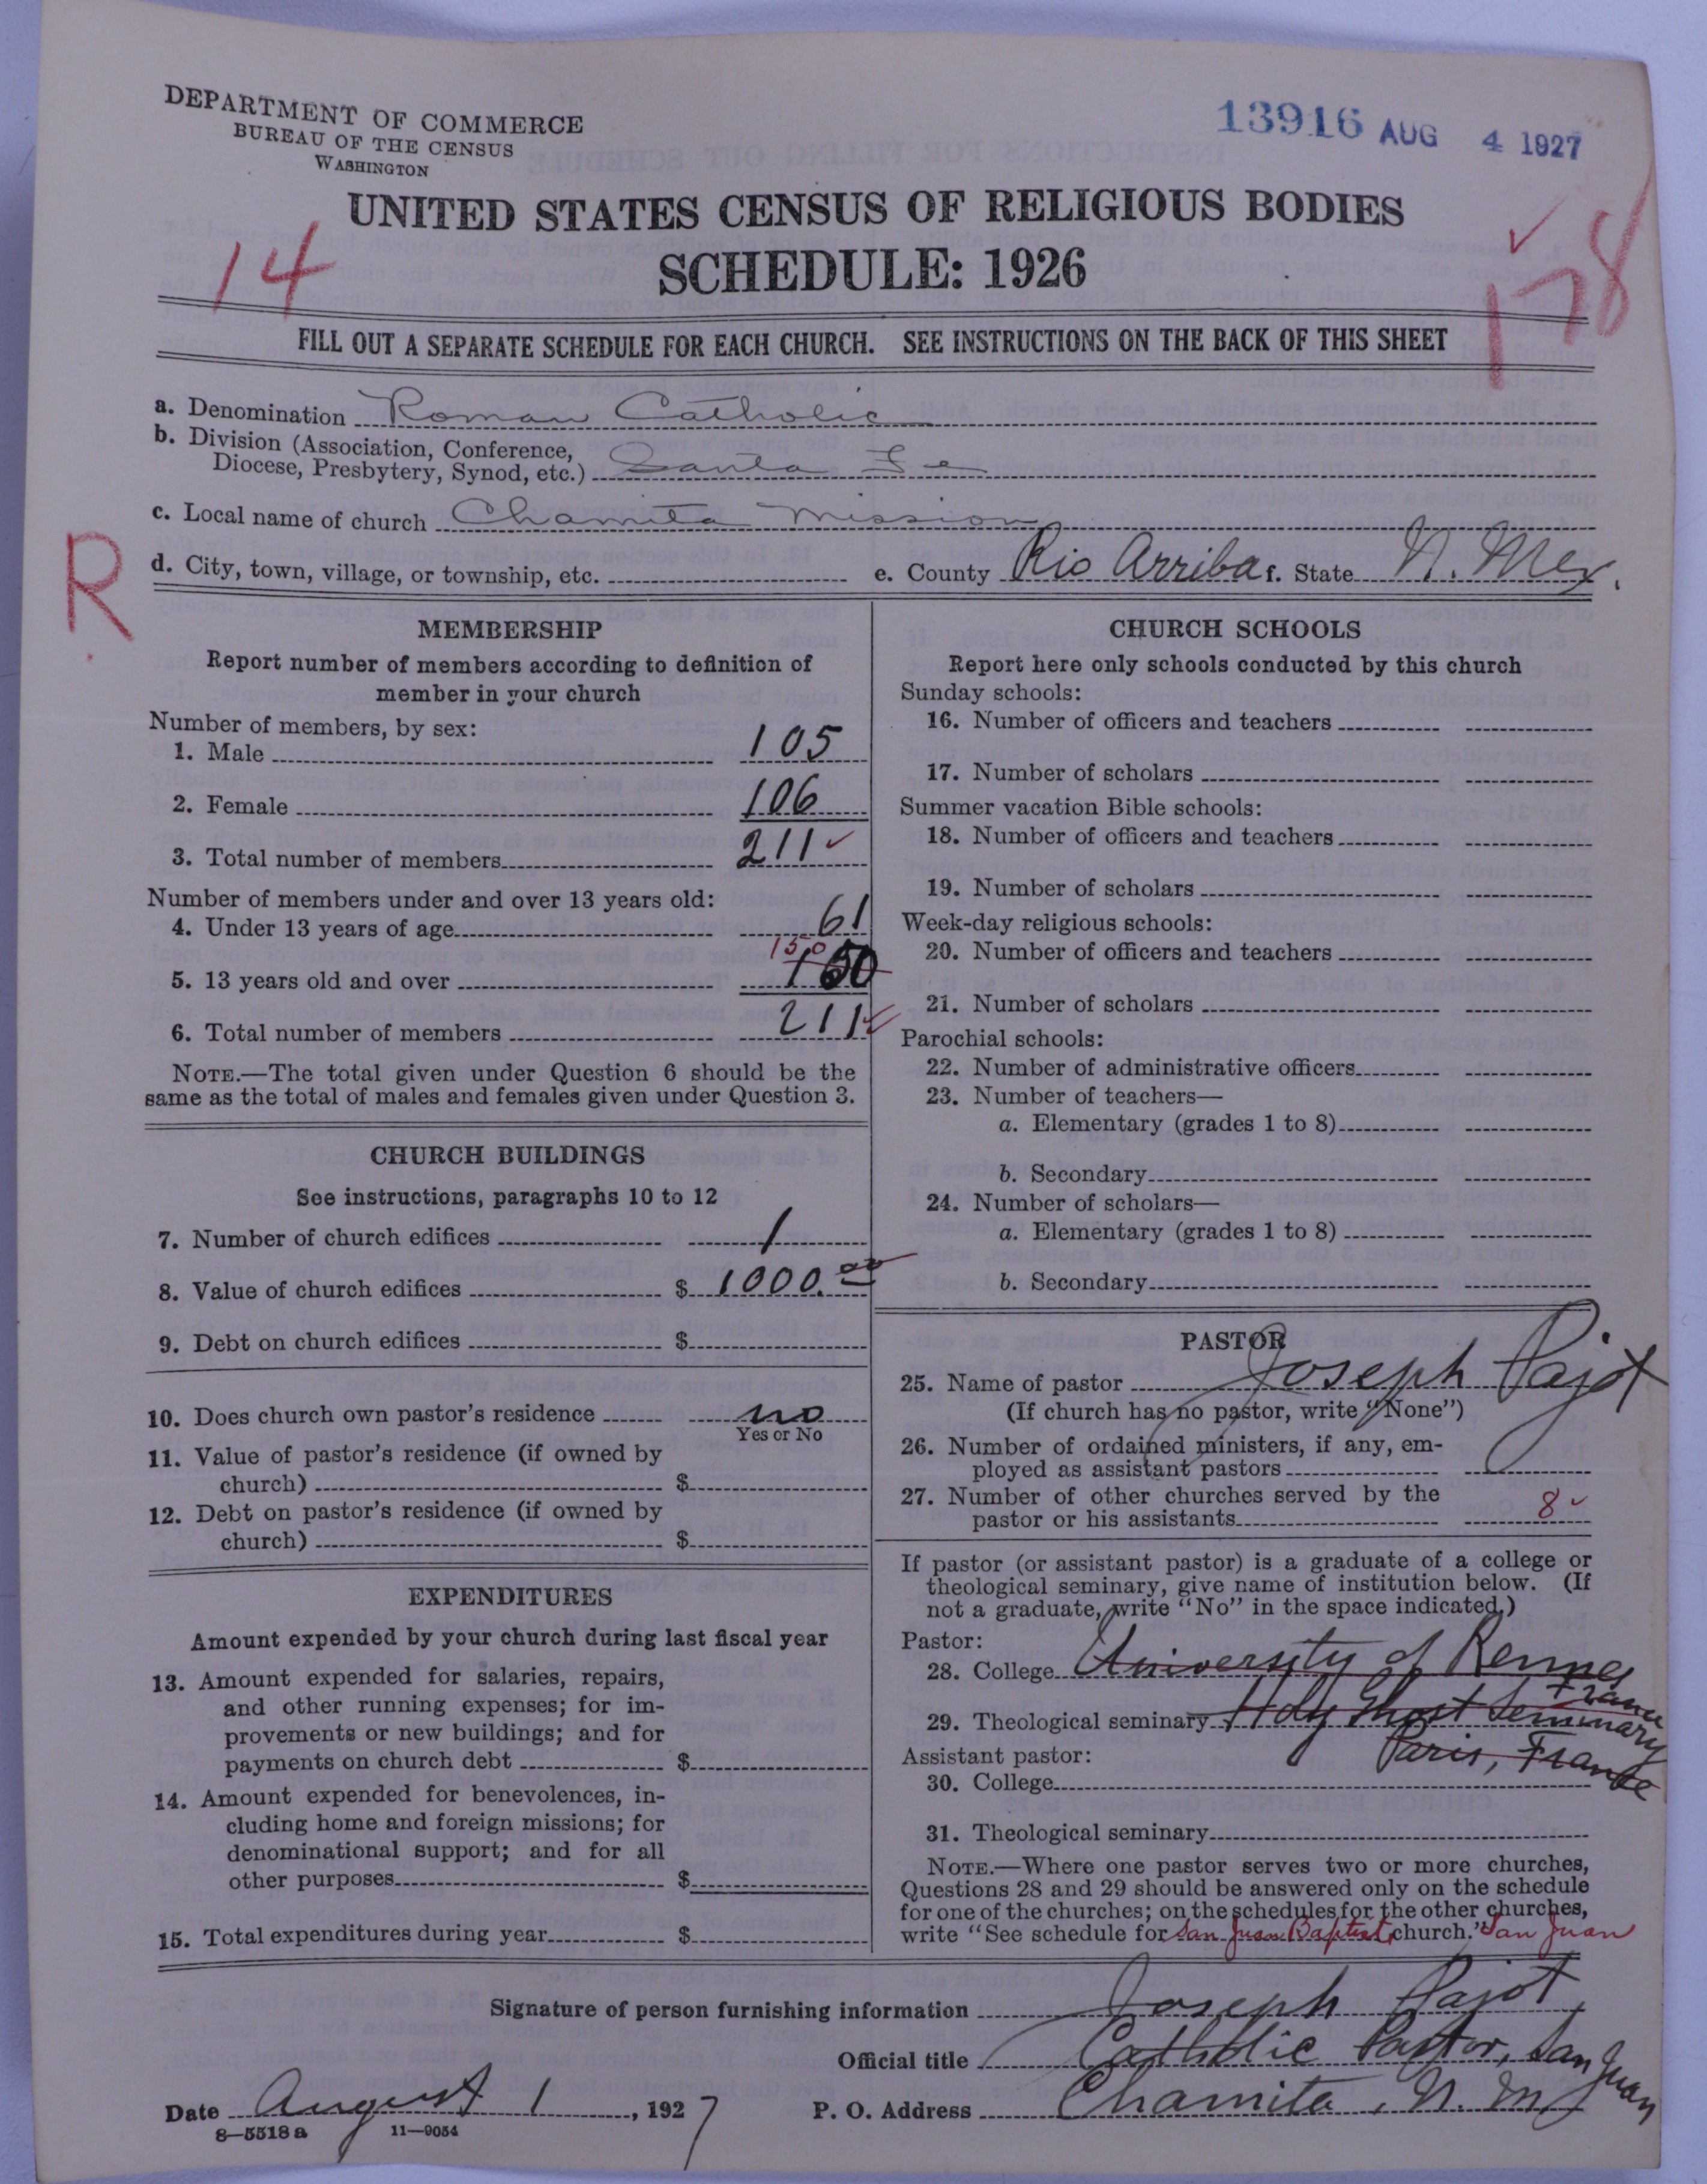 DEPARTMENT OF COMMERCE
BUREAU OF THE CENSUS
WASHINGTON
13916 AUG 4 1927
UNITED STATES CENSUS OF RELIGIOUS BODIES
SCHEDULE: 1926
14
178
FILL OUT A SEPARATE SCHEDULE FOR EACH CHURCH. SEE INSTRUCTIONS ON THE BACK OF THIS SHEET
a. Denomination Roman Catholic
b. Division (Association, Conference,
Diocese, Presbytery, Synod, etc.) Santa Fe
c. Local name of church Chamita Mission
R
d. City, town, village, or township, etc. e. County Rio Arriba f. State N. Mex.
MEMBERSHIP
Report number of members according to definition of
member in your church
Number of members, by sex:
1. Male 105
2. Female 106
3. Total number of members 211
Number of members under and over 13 years old:
4. Under 13 years of age 61
150
5. 13 years old and over 150
6. Total number of members 211
NOTE.—The total given under Question 6 should be the
same as the total of males and females given under Question 3.
CHURCH BUILDINGS
See instructions, paragraphs 10 to 12
7. Number of church edifices 1
8. Value of church edifices $ 1000.00
9. Debt on church edifices $
10. Does church own pastor's residence no
Yes or No
11. Value of pastor's residence (if owned by
church) $
12. Debt on pastor's residence (if owned by
church) $
EXPENDITURES
Amount expended by your church during last fiscal year
13. Amount expended for salaries, repairs,
and other running expenses; for im-
provements or new buildings; and for
payments on church debt $
14. Amount expended for benevolences, in-
cluding home and foreign missions; for
denominational support; and for all
other purposes $
15. Total expenditures during year $
CHURCH SCHOOLS
Report here only schools conducted by this church
Sunday schools:
16. Number of officers and teachers
17. Number of scholars
Summer vacation Bible schools:
18. Number of officers and teachers
19. Number of scholars
Week-day religious schools:
20. Number of officers and teachers
21. Number of scholars
Parochial schools:
22. Number of administrative officers
23. Number of teachers—
a. Elementary (grades 1 to 8)
b. Secondary
24. Number of scholars—
a. Elementary (grades 1 to 8)
b. Secondary
PASTOR
25. Name of pastor Joseph Pajot
(If church has no pastor, write "None")
26. Number of ordained ministers, if any, em-
ployed as assistant pastors
27. Number of other churches served by the
pastor or his assistants 8
If pastor (or assistant pastor) is a graduate of a college or
theological seminary, give name of institution below. (If
not a graduate, write "No" in the space indicated.)
Pastor:
28. College University of Rennes
France
29. Theological seminary Holy Ghost Seminary
Paris, France
Assistant pastor:
30. College
31. Theological seminary
NOTE.—Where one pastor serves two or more churches,
Questions 28 and 29 should be answered only on the schedule
for one of the churches; on the schedules for the other churches,
write "See schedule for San Juan Baptist church." San Juan
Signature of person furnishing information Joseph Pajot
Official title Catholic Pastor, San Juan
Date August 1, 1927 P. O. Address Chamita, N. M.
8—5518a 11—9054